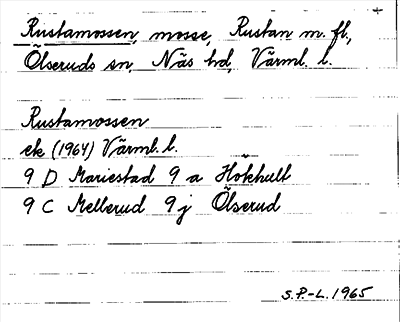 Rustamossen, mosse, Rustan m. fl.,
Ölseruds sn, Näs hd, Värml. l.
Rustamossen
ek (1964) Värml. l.
9 D Mariestad 9 a Hökhult
9 C Mellerud 9 j Ölserud
S.P.-L. 1965